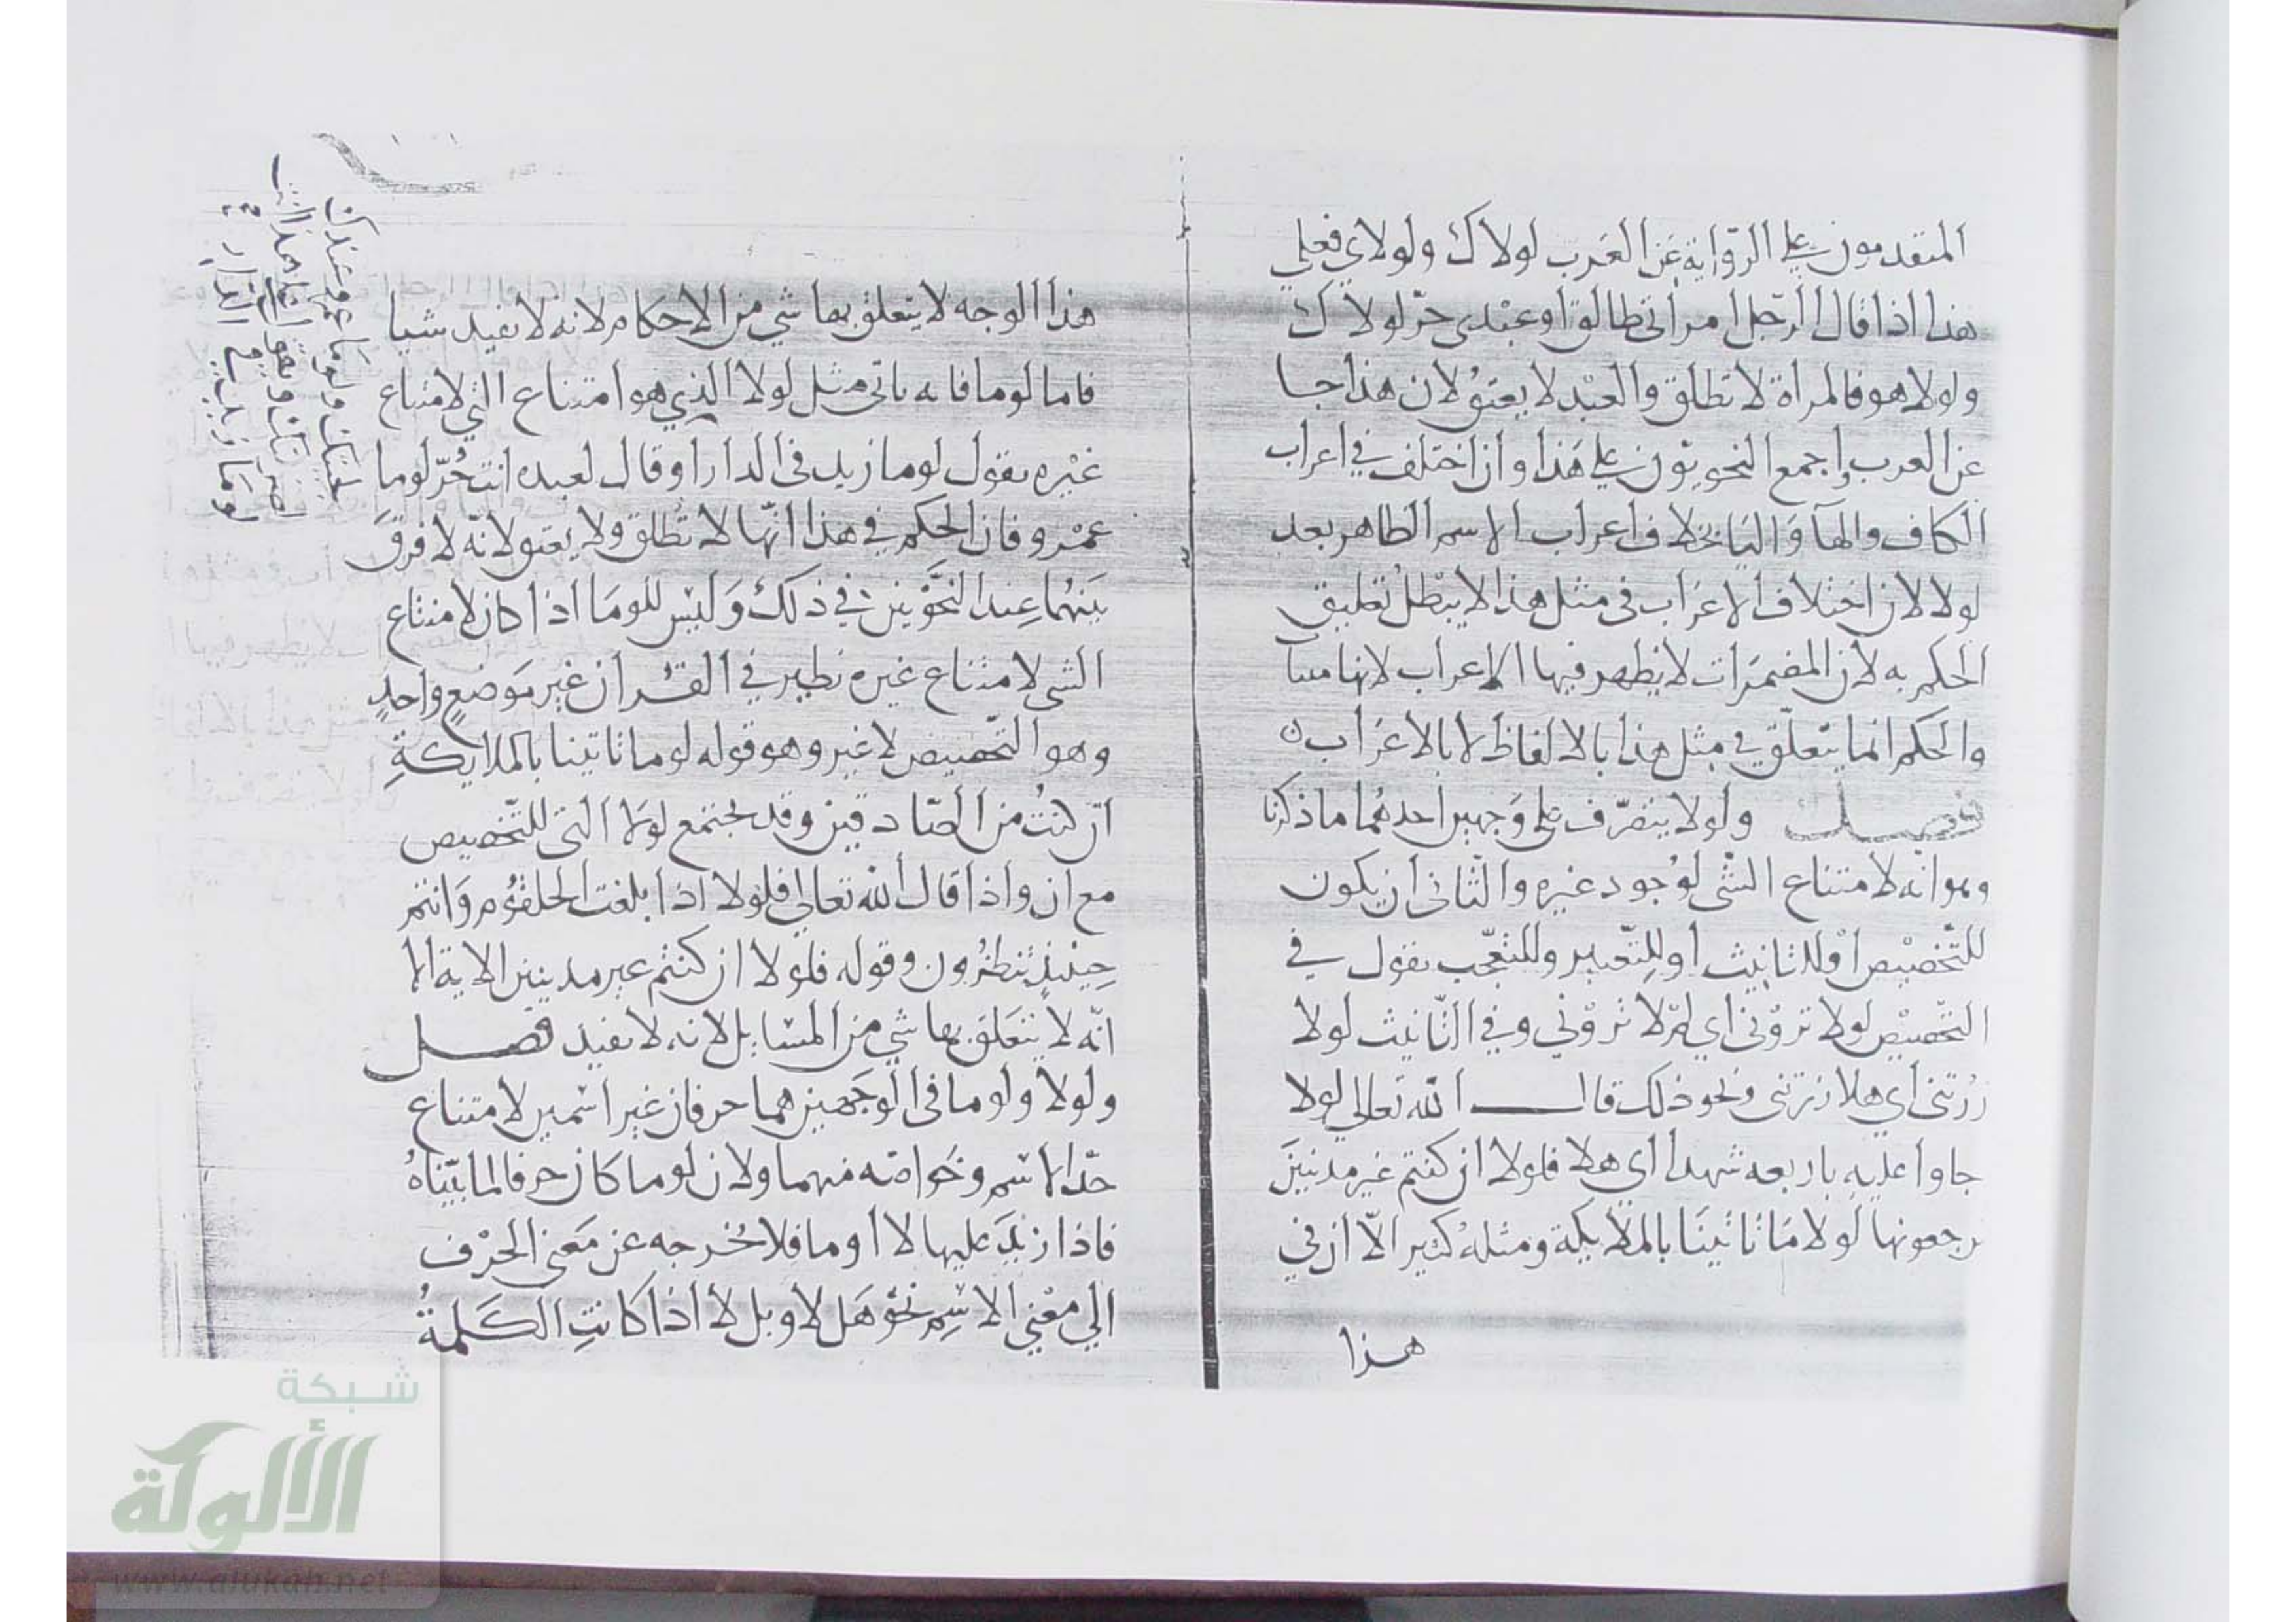 المتقدمون على الرّواية عن العَرب لولاك ولولاي فعلى
هذا اذا قال الرّجل امراتى طالق او عبدى حرّ لولاك
ولولا هو فالمراة لا تطلق والعبد لا يعتق لان هذا جا
عن العرب واجمع النحويون على هَذا وان اختلف في اعراب
الكاف والهآ وَاليَا بخلاف اعراب الاسم الظاهر بعد
لولا لان اختلاف الاعرَاب فى مثل هذا لا يبْطل تعليق
الحكم به لان المضمَرات لا يظهر فيها الاعراب لانها
والحكم انما يتعلّق في مثل هذا بالالفاظ لا بالاعرَاب
فصل ولولا يتصرّف على وَجهين احدهُما ما ذكرنا
وهو انّه لامتناع الشّى لوُجود غيره والثّانى ان يكون
للتّخضيْض أوْ للتانيث أو للتّخيير وللتعّجب تقول في
التّحضيْض لولا تروْنى اي لِمْ لا تروْنى وفي التّانيث لولا
زرتنى أي هلا زرتنى ونحو ذلك قال الله تعالى لولا
جاوا عليه باربعه شهدا أى هلا فلولا ان كنتم غير مدنينَ
ترجعونها لَولا مَا تَاتينَا بالملايكة ومثلهُ كثير الّا ان فى
هذا
هذا الوجه لا يتعلق بها شي من الاحكام لانه لا تفيد شيا
فاما لوما فانه ياتى مثل لولا الذي هو امتناع الشي لامتناع
غيْره تقول لوما زيد فى الدار او قال لعبده انت حُرّ لوما
عمْرو فان الحكم في هذا انّها لا تُطلق ولا يعتق لانّه لا فرقَ
بَينهُما عِند النّحَوّين في ذلك وَليْس للومَا اذا كان لامتناع
الشى لامتناع غيره نظير في القُران غير مَوضعٍ واحدٍ
وهو التّحضيض لا غير وهو قوله لوما تاتينا بالملايكةِ
ان كنتُ من الصّادقين وقد يجتمع لوَلا التى للتّحضيض
مع ان واذا قال الله تعالي فلولا اذا بلغت الحلقُوم وَانتم
حِينيذٍ تنظرُون وقوله فلولا ان كنتُم غير مدينين الاية الا
انّه لا يتَعلق بها شي من المسَايل لانه لا تفيد فصل
ولولا ولوما فى الوَجهين هما حرفان غير اسْمين لامتناع
حدّ الاسْم وخَواصّه منهما ولان لوما كان حرفا لما بيّناهُ
فاذا زيْدَ عليها لا او ما فلا تُخرجه عن مَعنى الحرْف
الي معْنى الاسْمِ نحْو هَل لا وبل لا اذا كانتِ الكَلمةُ
شبكة
الألوكة
www.alukah.net